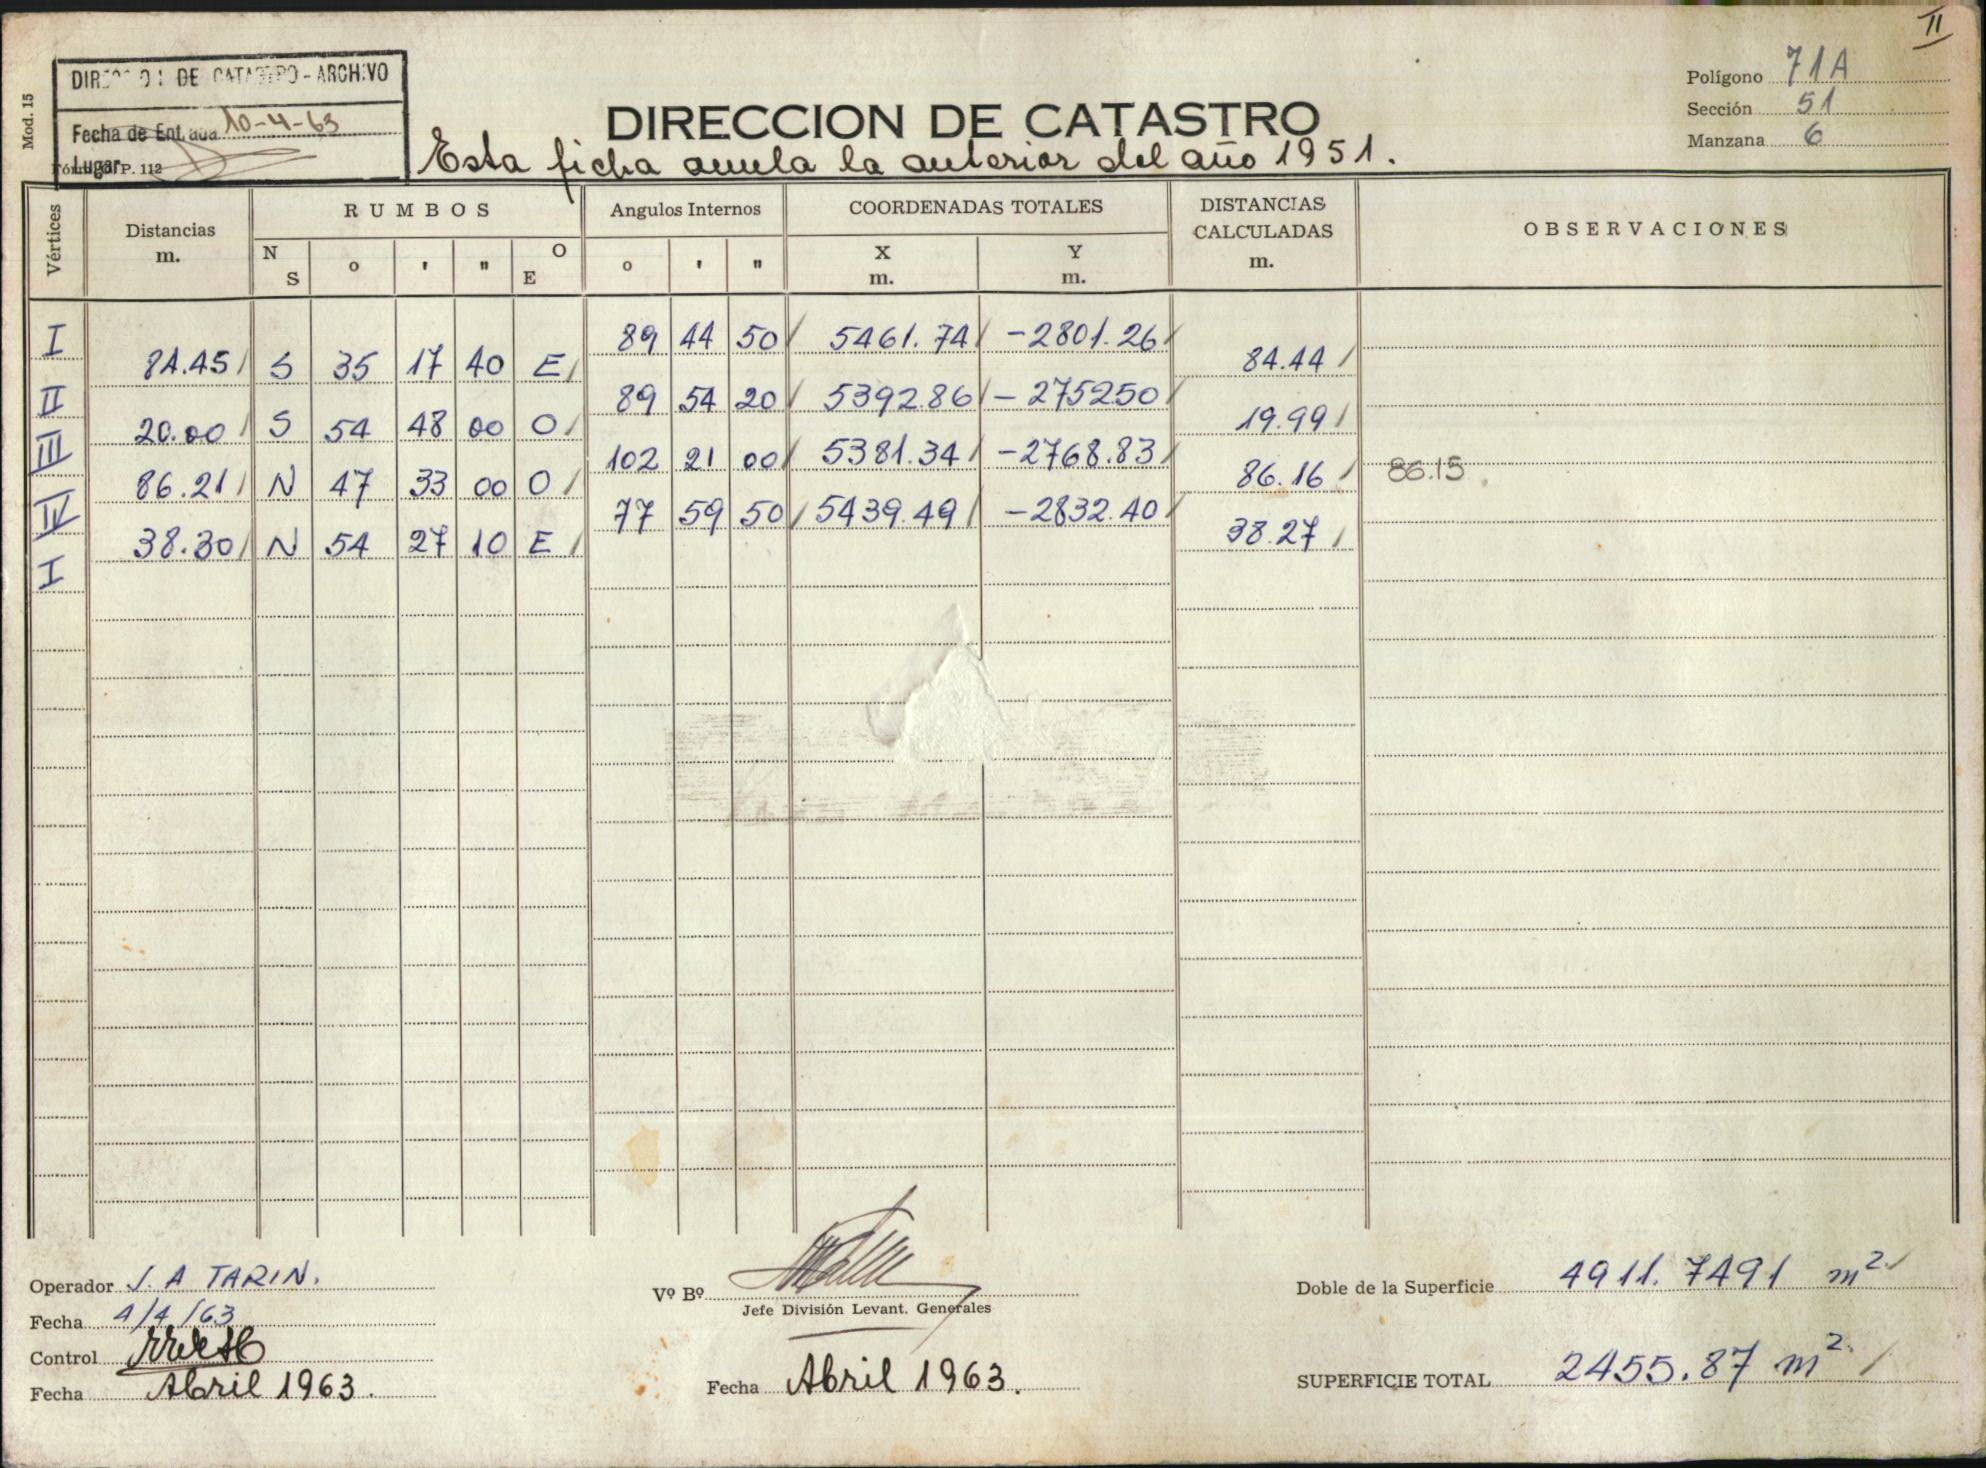 II
Mod. 15
DIRECCION DE CATASTRO - ARCHIVO
Fecha de Entrada 10-4-63
Lugar
P. 112
DIRECCION DE CATASTRO
Esta ficha anula la anterior del año 1951.
Polígono 71A
Sección 51
Manzana 6
Vértices
Distancias m.
RUMBOS
N S
o
'
"
O E
Angulos Internos
o ' "
COORDENADAS TOTALES
X m.
Y m.
DISTANCIAS CALCULADAS m.
OBSERVACIONES
I 89 44 50 5461.74 -2801.26
84.45 S 35 17 40 E 84.44
II 89 54 20 5392.86 -275250
20.00 S 54 48 00 O 19.99
III 102 21 00 5381.34 -2768.83
86.21 N 47 33 00 O 86.16 86.15
IV 77 59 50 5439.49 -2832.40
38.30 N 54 27 10 E 38.27
I
Operador J. A TARIN.
Fecha 4/4/63
Control
Fecha Abril 1963.
Vº Bº
Jefe División Levant. Generales
Fecha Abril 1963.
Doble de la Superficie 4911.7491 m2
SUPERFICIE TOTAL 2455.87 m2